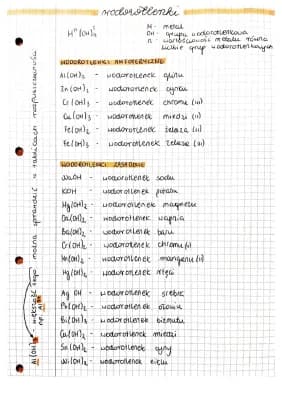 wodorotlenki
M - metal
OH - grupa wodorotlenkowa
n - wartościowość metalu równa
liczbie grup wodorotlenkowych
WODOROTLENKI AMFOTERYCZNE
Al(OH)3 - wodorotlenek glinu
Zn(OH)2 - wodorotlenek cynku
Cr(OH)3 - wodorotlenek chromu (III)
Cu(OH)2 - wodorotlenek miedzi (II)
Fe(OH)2 - wodorotlenek żelaza (II)
Fe(OH)3 - wodorotlenek żelaza (III)
WODOROTLENKI ZASADOWE
NaOH - wodorotlenek sodu
KOH - wodorotlenek potasu
Mg(OH)2 - wodorotlenek magnezu
Ca(OH)2 - wodorotlenek wapnia
Ba(OH)2 - wodorotlenek baru
Cr(OH)2 - wodorotlenek chromu (II)
Mn(OH)2 - wodorotlenek manganu (II)
wodorotlenek rtęci
Ag OH - wodorotlenek srebra
Pb(OH)2 - wodorotlenek ołowiu
Bi(OH)3 - wodorotlenek bizmutu
Cu(OH)2 - wodorotlenek miedzi
Sn(OH)2 - wodorotlenek cyny
wodorotlenek
można sprawdzić w tablicach rozpuszczalności
np. Al
Al(OH)3